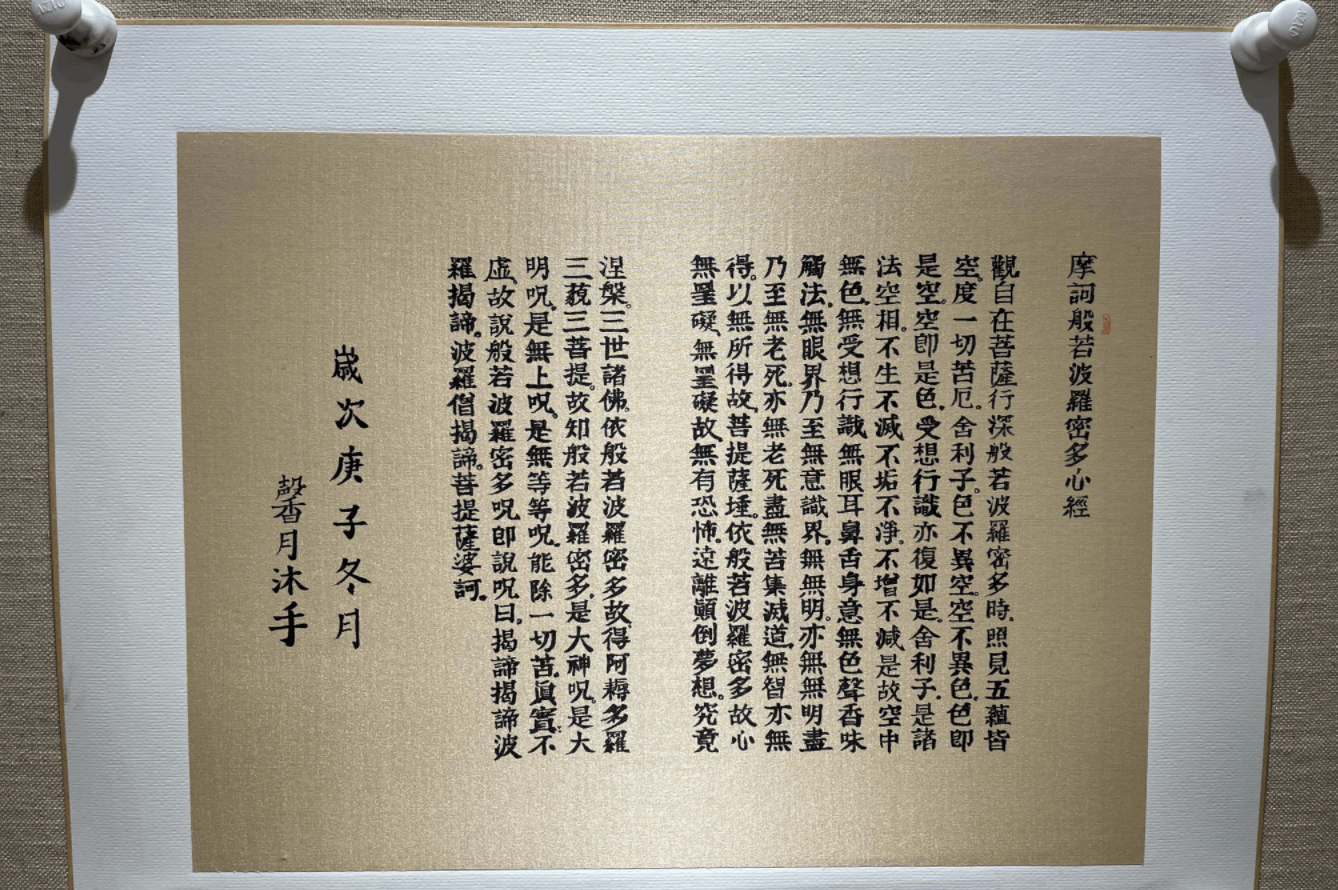 摩訶般若波羅密多心經
觀自在菩薩行深般若波羅密多時。照見五蘊皆
空。度一切苦厄。舍利子。色不異空。空不異色。色即
是空。空即是色。受想行識亦復如是。舍利子。是諸
法空相。不生不滅不垢不淨。不增不減是故空中
無色。無受想行識無眼耳鼻舌身意無色聲香味
觸法。無眼界乃至無意識界。無無明。亦無無明盡
乃至無老死。亦無老死盡無苦集滅道。無智亦無
得。以無所得故。菩提薩埵。依般若波羅密多故心
無罣礙、無罣礙故。無有恐怖。遠離顛倒夢想。究竟
涅槃。三世諸佛。依般若波羅密多故。得阿耨多羅
三藐三菩提。故知般若波羅密多。是大神呪。是大
明呪。是無上呪。是無等等呪。能除一切苦。眞實不
虛、故說般若波羅密多呪即說呪曰。揭諦揭諦波
羅揭諦。波羅僧揭諦。菩提薩婆訶。
歲次庚子冬月
馨月沐手